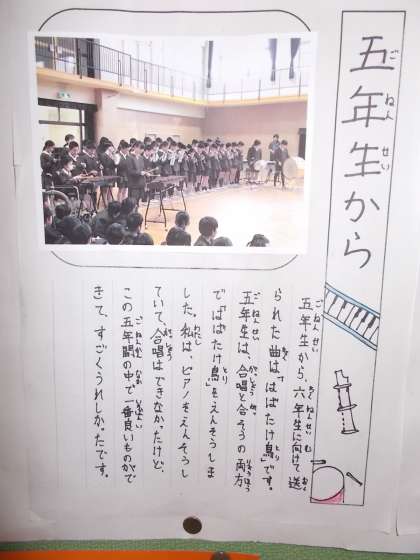 五年生から
ごねんせい
五年生から、六年生に向けて送
られた曲は、「はばたけ鳥」です。
五年生は、合唱と合そうの両方
で「はばたけ鳥」をえんそうしま
した。私は、ピアノをえんそうし
ていて、合唱はできなかったけど、
この五年間の中で一番良いものがで
きて、すごくうれしかったです。